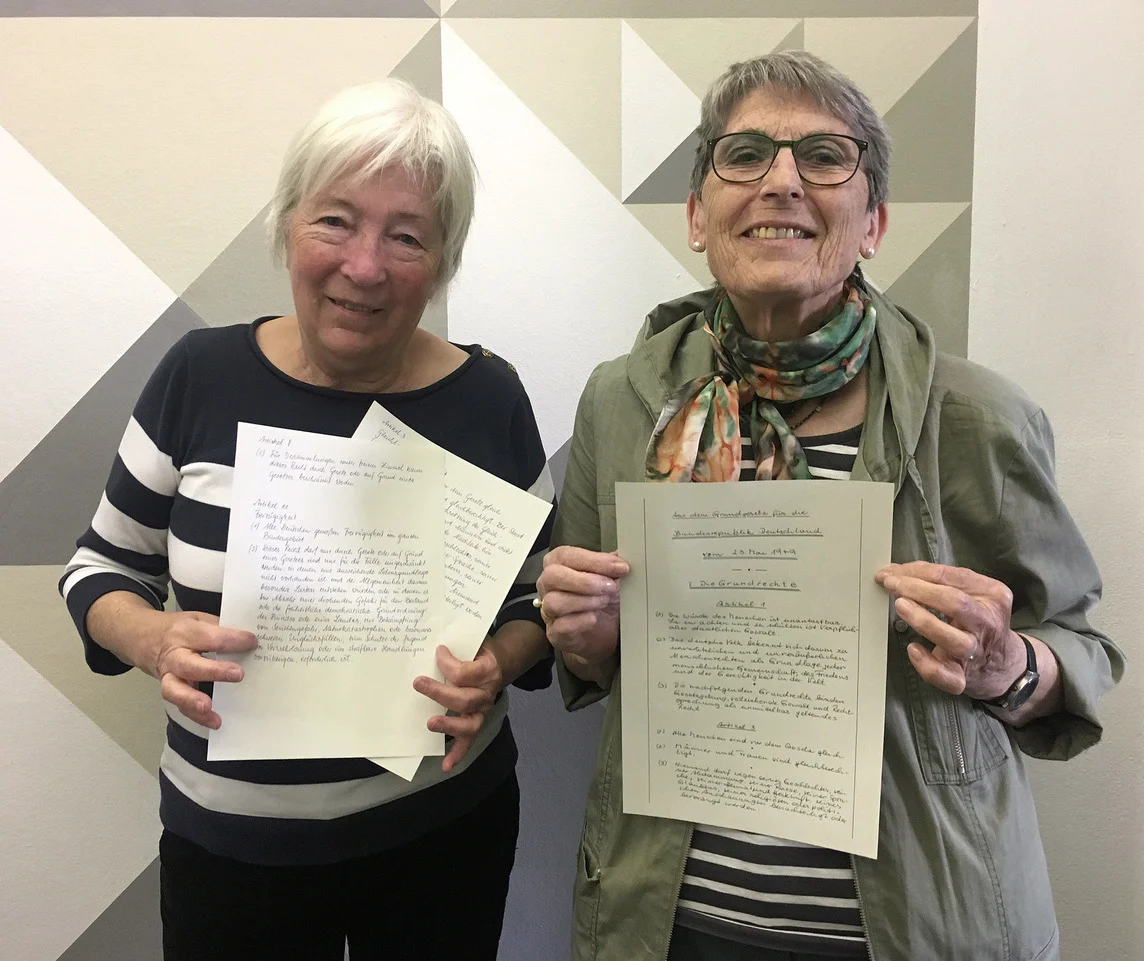 Artikel 8
(2) Für Versammlungen unter freiem Himmel kann
dieses Recht durch Gesetz oder auf Grund eines
Gesetzes beschränkt werden
Artikel 11
Freizügigkeit
(1) Alle Deutschen genießen Freizügigkeit im ganzen
Bundesgebiet
(2) Dieses Recht darf nur durch Gesetz oder auf Grund
eines Gesetzes und nur für die Fälle eingeschränkt
werden in denen eine ausreichende Lebensgrundlage
nicht vorhanden ist und der Allgemeinheit daraus
besondere Lasten entstehen würden oder in denen es
zur Abwehr einer drohenden Gefahr für den Bestand
oder die freiheitliche demokratische Grundordnung
des Bundes oder eines Landes, zur Bekämpfung
von Seuchengefahr, Naturkatastrophen oder besonders
schweren Unglücksfällen, zum Schutze der Jugend
vor Verwahrlosung oder um strafbare Handlungen
vorzubeugen, erforderlich ist.
Artikel 3
Gleichh
dem Gesetz gleich
gleichberechtigt. Der Staat
Aus dem Grundgesetz für die
Bundesrepublik Deutschland
vom 23. Mai 1949
I. Die Grundrechte
Artikel 1
(1) Die Würde des Menschen ist unantastbar
Sie zu achten und zu schützen ist Verpflich-
aller staatlichen Gewalt.
(2) Das deutsche Volk bekennt sich darum zu
unverletzlichen und unveräußerlichen
Menschenrechten als Grundlage jeder
menschlichen Gemeinschaft, des Friedens
und der Gerechtigkeit in der Welt
(3) Die nachfolgenden Grundrechte binden
Gesetzgebung, vollziehende Gewalt und Recht
sprechung als unmittelbar geltendes
Recht
Artikel 3
(1) Alle Menschen sind vor dem Gesetz gleich
(2) Männer und Frauen sind gleichberech-
tigt.
(3) Niemand darf wegen seines Geschlechtes, sei-
ner Abstammung, seiner Rasse, seiner Spra-
che, seiner Heimat und Herkunft, seines
Glaubens, seiner religiösen oder politi-
schen Anschauungen benachteiligt oder
bevorzugt werden